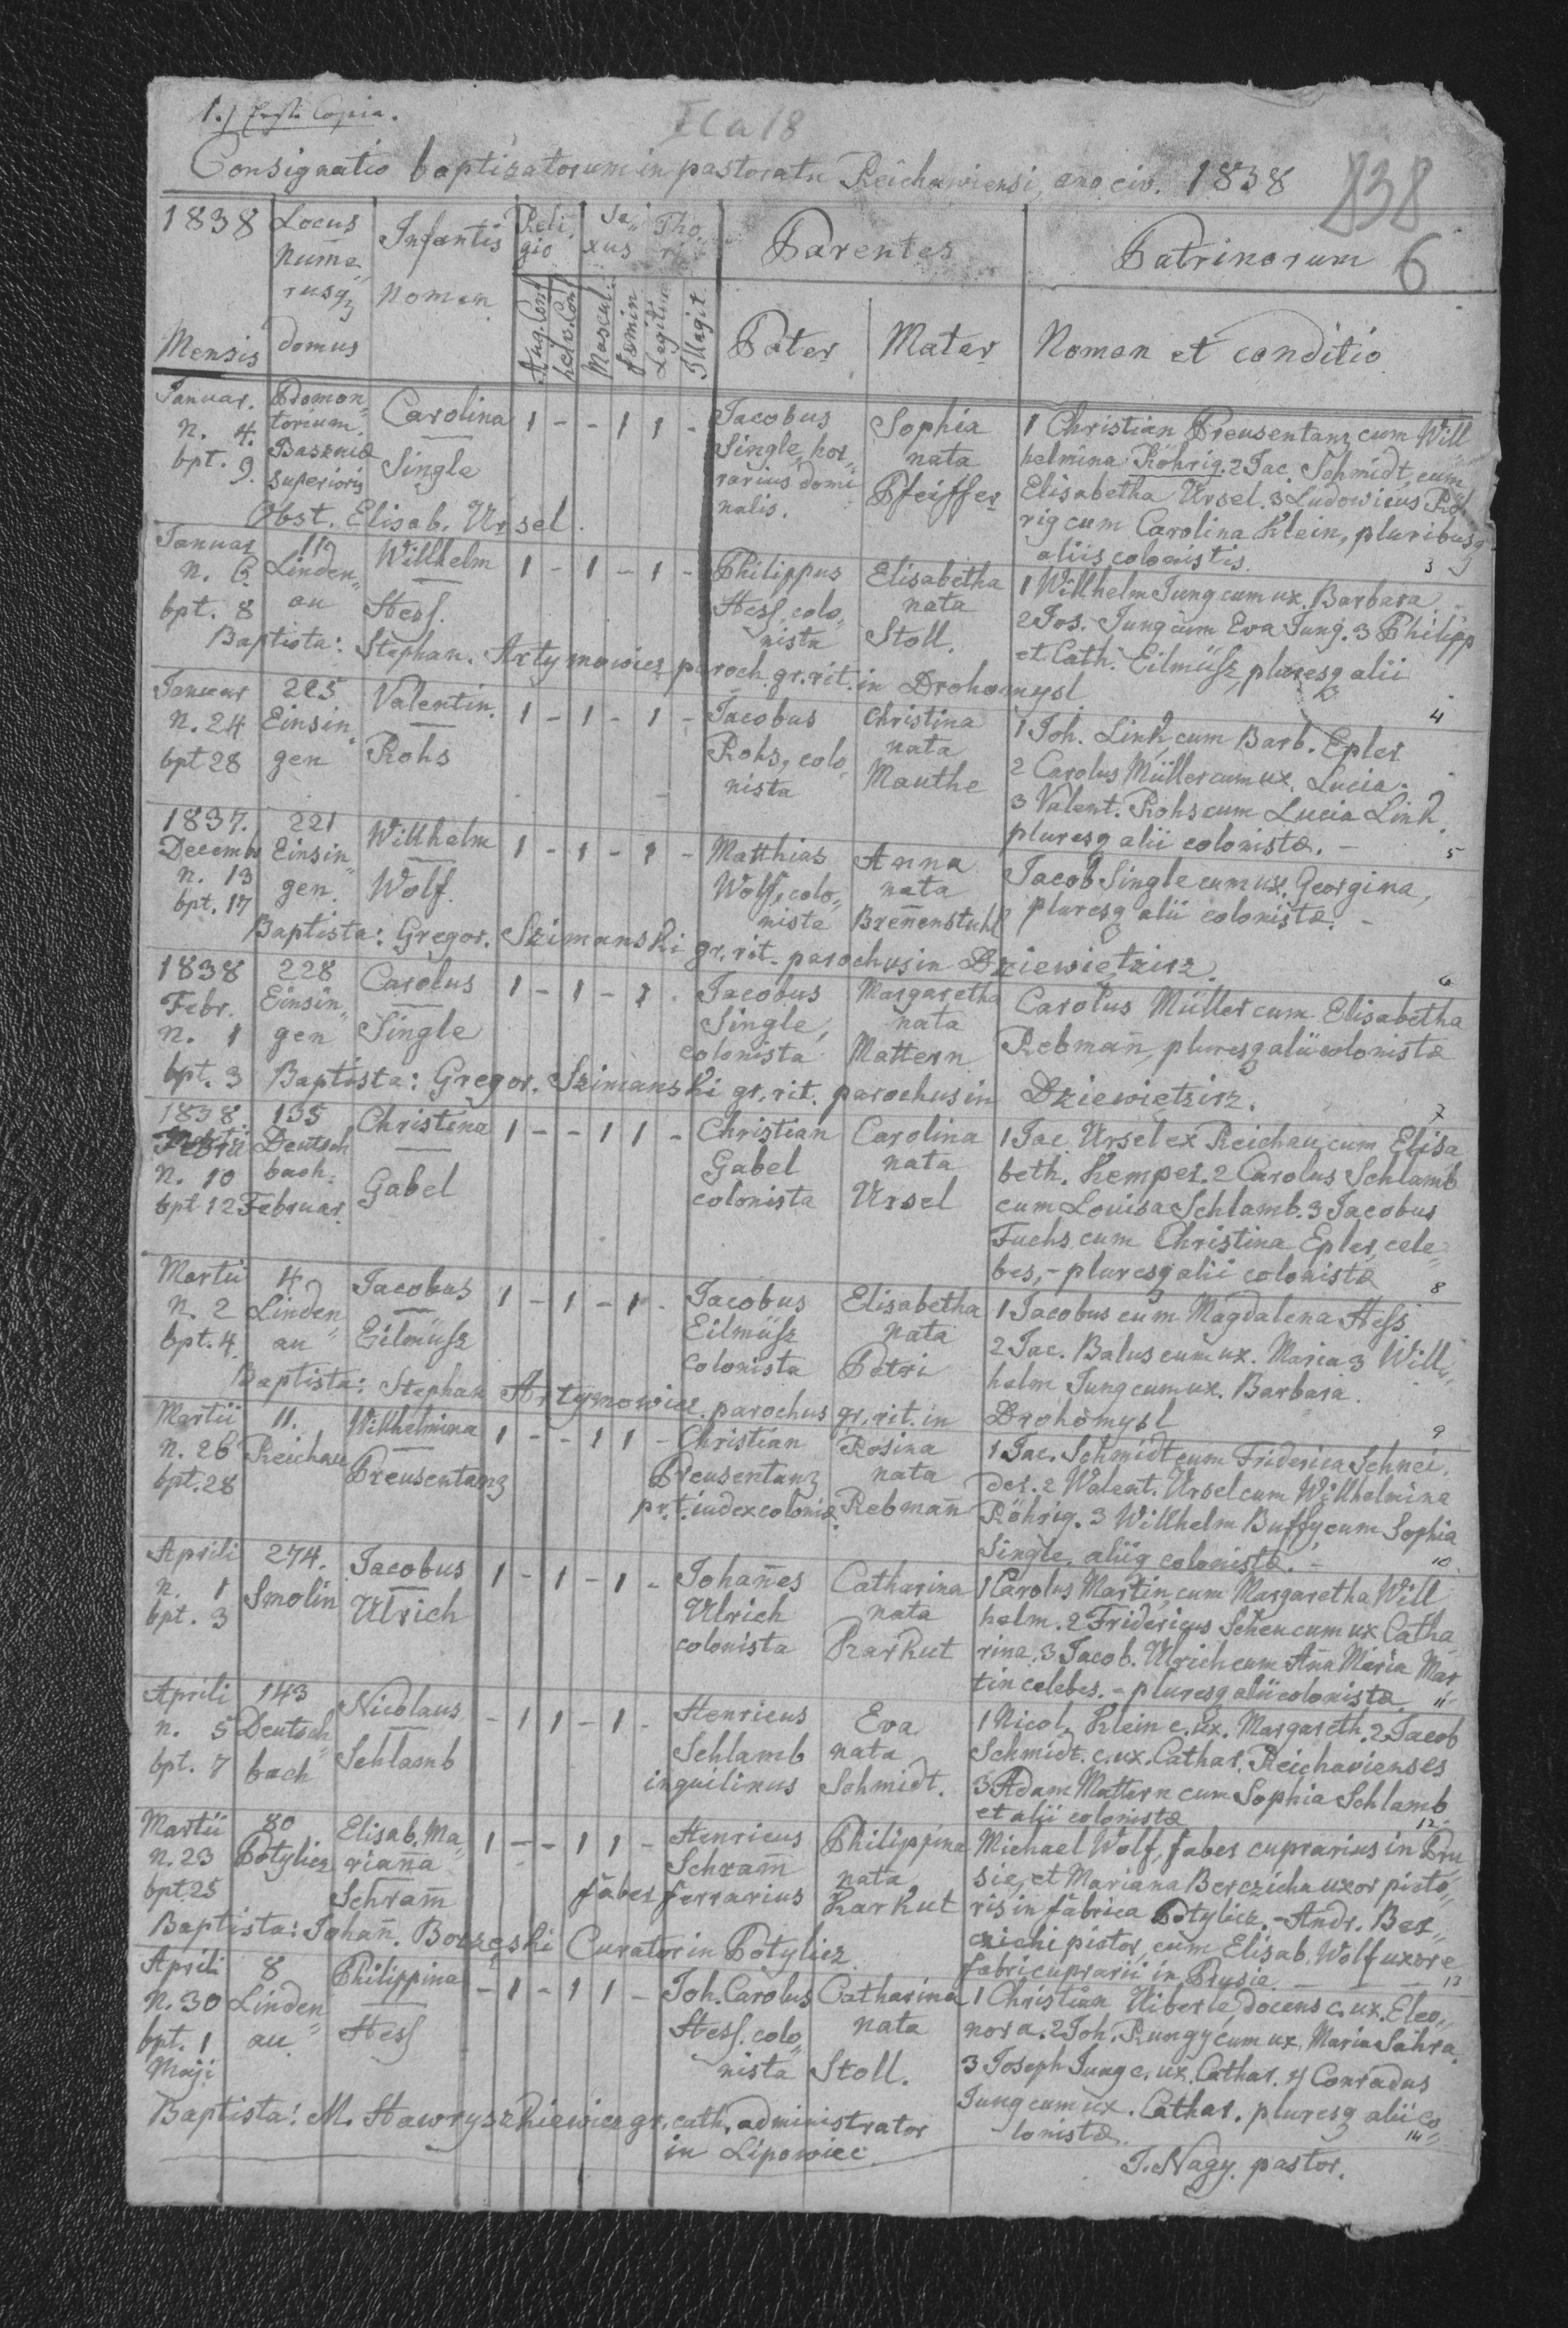 1.) Copia.
I C a 18
Consignatio baptizatorum in pastoratu Reichaviensi, ano civ. 1838
838
6
1838 Mensis
Locus Nume„ rusq domus
Infantis Nomen
Reli„ gio
Se„ xus
Tho„ ri
Aug. Conf
helv. Conf
Mascul.
Femin
Legitim
Illegit.
Parentes
Pater
Mater
Patrinorum
Nomen et conditio
Januar. n. 4. bpt. 9.
Promon„ torium Baszniæ superioris
Carolina Single
1 - - 1 1 -
Jacobus Single, hor„ rarius domi nalis.
Sophia nata Pfeiffer
1 Christian Preusentanz cum Will
helmina Röhrig. 2 Jac. Schmidt, cum
Elisabetha Ursel. 3 Ludovicus Röh
rig cum Carolina Klein, pluribusq
aliis colonistis.
Obst. Elisab. Ursel.
3
Januar n. 6. bpt. 8
Linden„ au
Willhelm Hess.
1 - 1 - 1 -
Philippus Hess, colo„ nista
Elisabetha nata Stoll.
1 Willhelm Jung cum ux. Barbara
2 Jos. Jung cum Eva Jung. 3 Philipp
et Cath. Eilmüsz, pluresq alii
Baptista: Stephan. Artymowicz paroch. gr. rit. in Drohomysl.
4
Januar n. 24 bpt 28
225 Einsin„ gen
Valentin. Rohs
1 - 1 - 1 -
Jacobus Rohs, colo„ nista
Christina nata Mauthe
1 Joh. Link, cum Barb. Epler
2 Carolus Müller cum ux. Lucia.
3 Valent. Rohs cum Lucia Link.
pluresq alii colonistæ. -
5
1837. Decemb n. 13 bpt. 17
221 Einsin„ gen.
Willhelm Wolf.
1 - 1 - 1 -
Matthias Wolf, colo„ nista
Anna nata Breñenstuhl
Jacob Single cum ux. Georgina,
pluresq alii colonistæ. -
Baptista: Gregor. Szimanski gr. rit. parochus in Dziewiętzirz.
6
1838 Febr. n. 1 bpt. 3
228 Einsin„ gen
Carolus Single
1 - 1 - 1 -
Jacobus Single, colonista
Margaretha nata Mattern
Carolus Müller cum Elisabetha
Rebmañ, pluresq alii colonistæ
Baptista: Gregor. Szimanski gr. rit. parochus in Dziewiętzirz.
7
1838. n. 10 bpt 12 Februar.
135 Deutsch bach.
Christina Gabel
1 - - 1 1 -
Christian Gabel colonista
Carolina nata Ursel
1 Jac. Ursel ex Reichau, cum Elisa
beth. Kemper. 2 Carolus Schlamb
cum Louisa Schlamb. 3 Jacobus
Fuchs cum Christina Epler, cele„
bes, - pluresq alii colonistæ
8
Martii n. 2 bpt. 4
4 Linden„ au
Jacobus Eilmüsz
1 - 1 - 1 -
Jacobus Eilmüsz colonista
Elisabetha nata Petri
1 Jacobus cum Magdalena Hess
2 Jac. Balus cum ux. Maria 3 Will„
helm Jung cum ux. Barbara.
Baptista: Stephan Artymowicz. parochus gr. rit. in Drohomysl
9
Martii n. 26 bpt. 28
11. Reichau
Wilhelmina Preusentanz
1 - - 1 1 -
Christian Preusentanz pr. t. iudex coloniæ
Rosina nata Rebmañ
1 Jac. Schmidt cum Friderica Schnei„
der. 2 Valent. Ursel cum Willhelmina
Röhrig. 3 Willhelm Buffy, cum Sophia
Single, aliiq colonistæ. -
10
Aprili n. 1 bpt. 3
274. Smolin
Jacobus Ulrich
1 - 1 - 1 -
Johañes Ulrich colonista
Catharina nata Karkut
1 Carolus Martin, cum Margaretha Will
helm. 2 Fridericus Scheu cum ux Catha„
rina. 3 Jacob. Ulrich cum Aña Maria Mar
tin celebes. - pluresq alii colonistæ.
11
Aprili n. 5 bpt. 7
143 Deutsch„ bach
Nicolaus Schlamb
- 1 1 - 1 -
Henricus Schlamb inquilinus
Eva nata Schmidt.
1 Nicol. Klein c. ux. Margareth. 2 Jacob
Schmidt. c. ux. Cathar. Reichavienses
3 Adam Mattern cum Sophia Schlamb
et alii colonistæ
12
Martii n. 23 bpt 25
80 Potylicz
Elisab. Ma„ riaña Schram̃
1 - - 1 1 -
Henricus Schram̃ faber ferrarius
Philippina nata Karkut
Michael Wolf, faber cuprarius in Pru
sie, et Mariana Berczicha uxor picto„
ris in fabrica Potylicz. - Andr. Ber„
czichi pictor, cum Elisab. Wolf uxore
fabri cuprarii in Prusie
Baptista: Johañ. Borzęski Curator in Potylicz.
13
Aprili n. 30 bpt. 1 Maji
8 Linden„ au
Philippina Hess
- 1 - 1 1 -
Joh. Carolus Hess. colo„ nista
Catharina nata Stoll.
1 Christian Uiberle, docens c. ux. Eleo„
nora. 2 Joh. Rungy cum ux. Maria Sahra.
3 Joseph Jung c. ux. Cathar. 4 Conradus
Jung cum ux. Cathar. pluresq alii co
lonistæ.
Baptista: M. Hawryszkiewicz gr. cath. administrator
in Lipowiec.
14
J. Nagy. pastor.